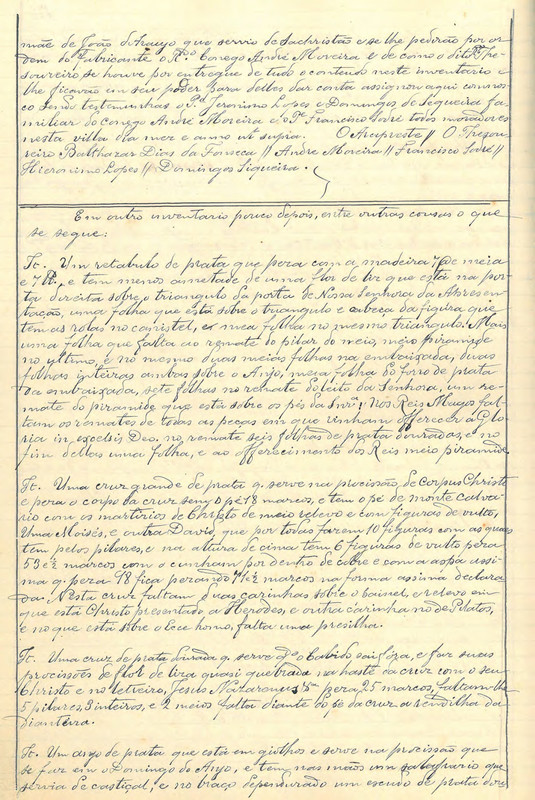 mãe de João de Araujo que servio de Sachristão e se lhe pederão por or
dem do Fabricante o R.do Conego André Moreira e de como o dito R. The-
soureiro se houve por entregue de tudo o conteudo neste inventario e
lhe ficavão em seu poder para delles dar conta assignou aqui comnos-
co sendo testemunhas o P.e Jeronimo Lopes e Domingos de Sequeira fa-
miliar do Conego André Moreira e o P.e Francisco Sodré todos moradores
nesta villa dia mez e anno ut supra. O Arcypreste // O Thezou-
reiro Balthazar Dias da Fonseca // Andre Moreira // Francisco Sodré //
Hieronimo Lopes // Domingos Siqueira.
Em outro inventario pouco depois, entre outras cousas o que
se segue:
It. Um retabulo de prata que peza com a madeira
e tem menos ametade de uma flor de liz que está na por-
ta direita sobre o triangulo da porta de Nossa Senhora da Apresen-
tação, uma folha que está sobre o triangulo e cabeça da figura que
tem as rolas no canistel, e mea folha no mesmo triangulo. Mais
uma folha que falta ao remate do pilar do meio, meio piramide
no ultimo, e no mesmo duas meias folhas na embaixada, duas
folhas inteiras ambas sobre o Anjo, meia folha do forro de prata
da embaixada, sete folhas no remate do leito da Senhora, um re-
mate do piramide que está sobre os pés da Snr.a Nos Reis Magos fal-
tam os remates de todas as peças em que vinham offerecer a Glo-
ria in excelsis Deo. no remate seis folhas de prata douradas, e no
fim dellas uma folha, e ao offerecimento dos Reis meio piramide
It. Uma cruz grande de prata q. serve na procissão de Corpus Christe
e peza o corpo da cruz sem o pé 18 marcos, e tem o pé de monte calva-
rio com os martirios de Christo de meio relevo e com figuras de vulto,
Uma Moisés, e outra David, que por todas fazem 10 figuras com as quaes
tem pelos pilares, e na altura de cima tem 6 figuras de vulto peza
53 e ½ marcos com o cunham por dentro de cobre e com a aspa assi-
ma q. peza 18 fica pezando 71 e ½ marcos na forma assima declara
da. Nesta cruz faltam duas carinhas sobre o bainel, e relevo em
que está Christo presentado a Herodes, e outra carinha no de Pilatos,
e no que está sobre o Ecce homo, falta uma presilha.
It. Uma cruz de prata dourada q. serve q.do o Cabido sai fóra, e faz suas
procissões de flor de liza quasi quebrada na haste da cruz com o seu
Christo e no letreiro, Jesus Nazarenus peza 25 marcos, faltam-lhe
5 pilares, 3 inteiros, e 2 meios falta diante do pé da cruz a rendilha da
dianteira.
It. Um anjo de prata que está em giolhos e serve na procissão que
se faz em o Domingo do Anjo, e tem nas mãos um que
servia de castiçal, e no braço dependurado um escudo de prata dou